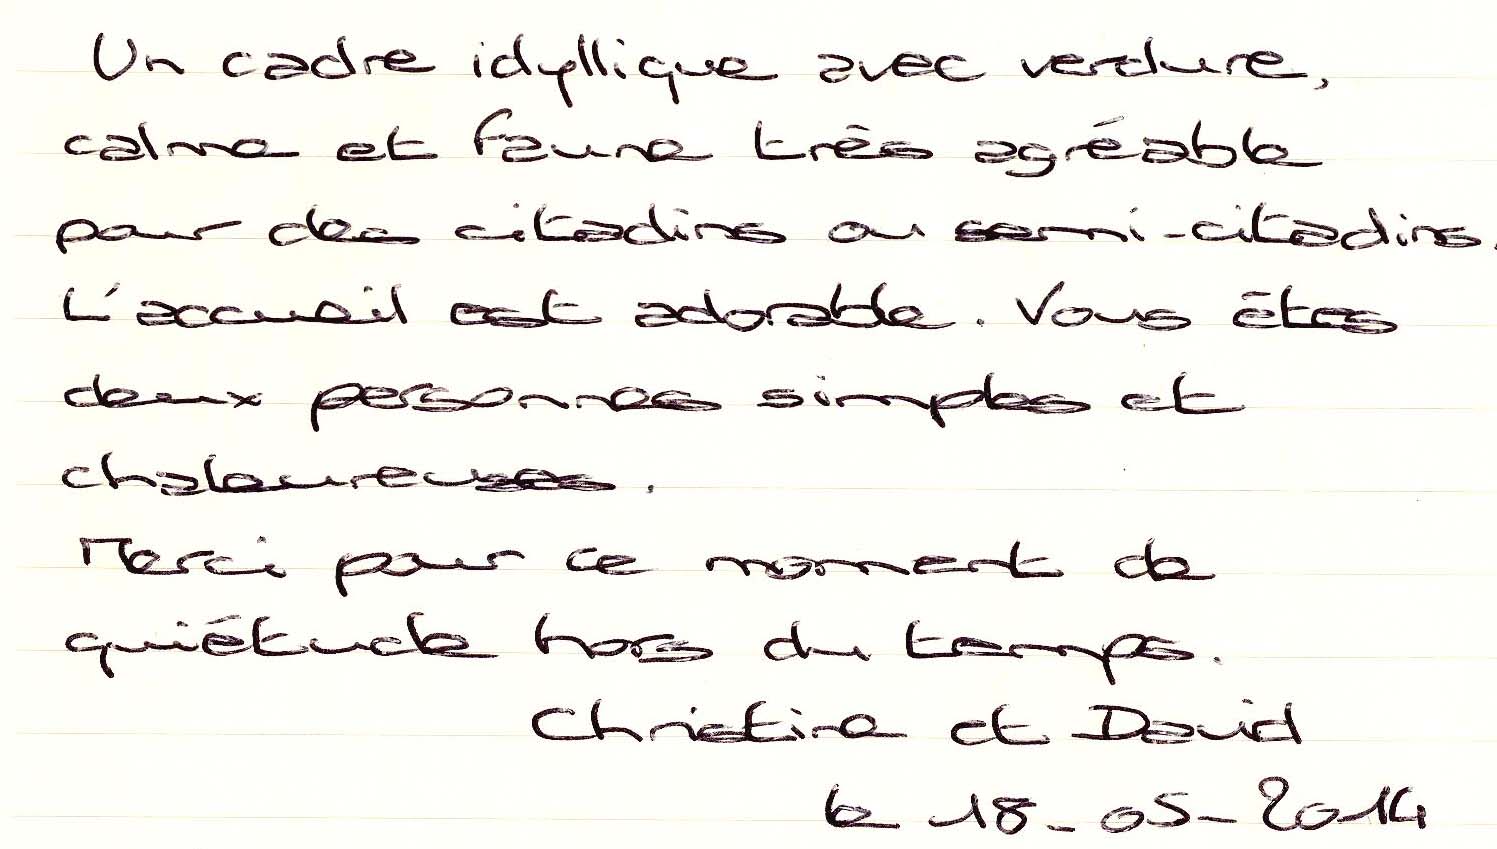 Un cadre idyllique avec verdure,
calme et faune très agréable
pour des citadins ou semi-citadins.
L'accueil est adorable. Vous êtes
deux personnes simples et
chaleureuses.
Merci pour ce moment de
quiétude hors du temps.
Christine et David
le 18-05-2014